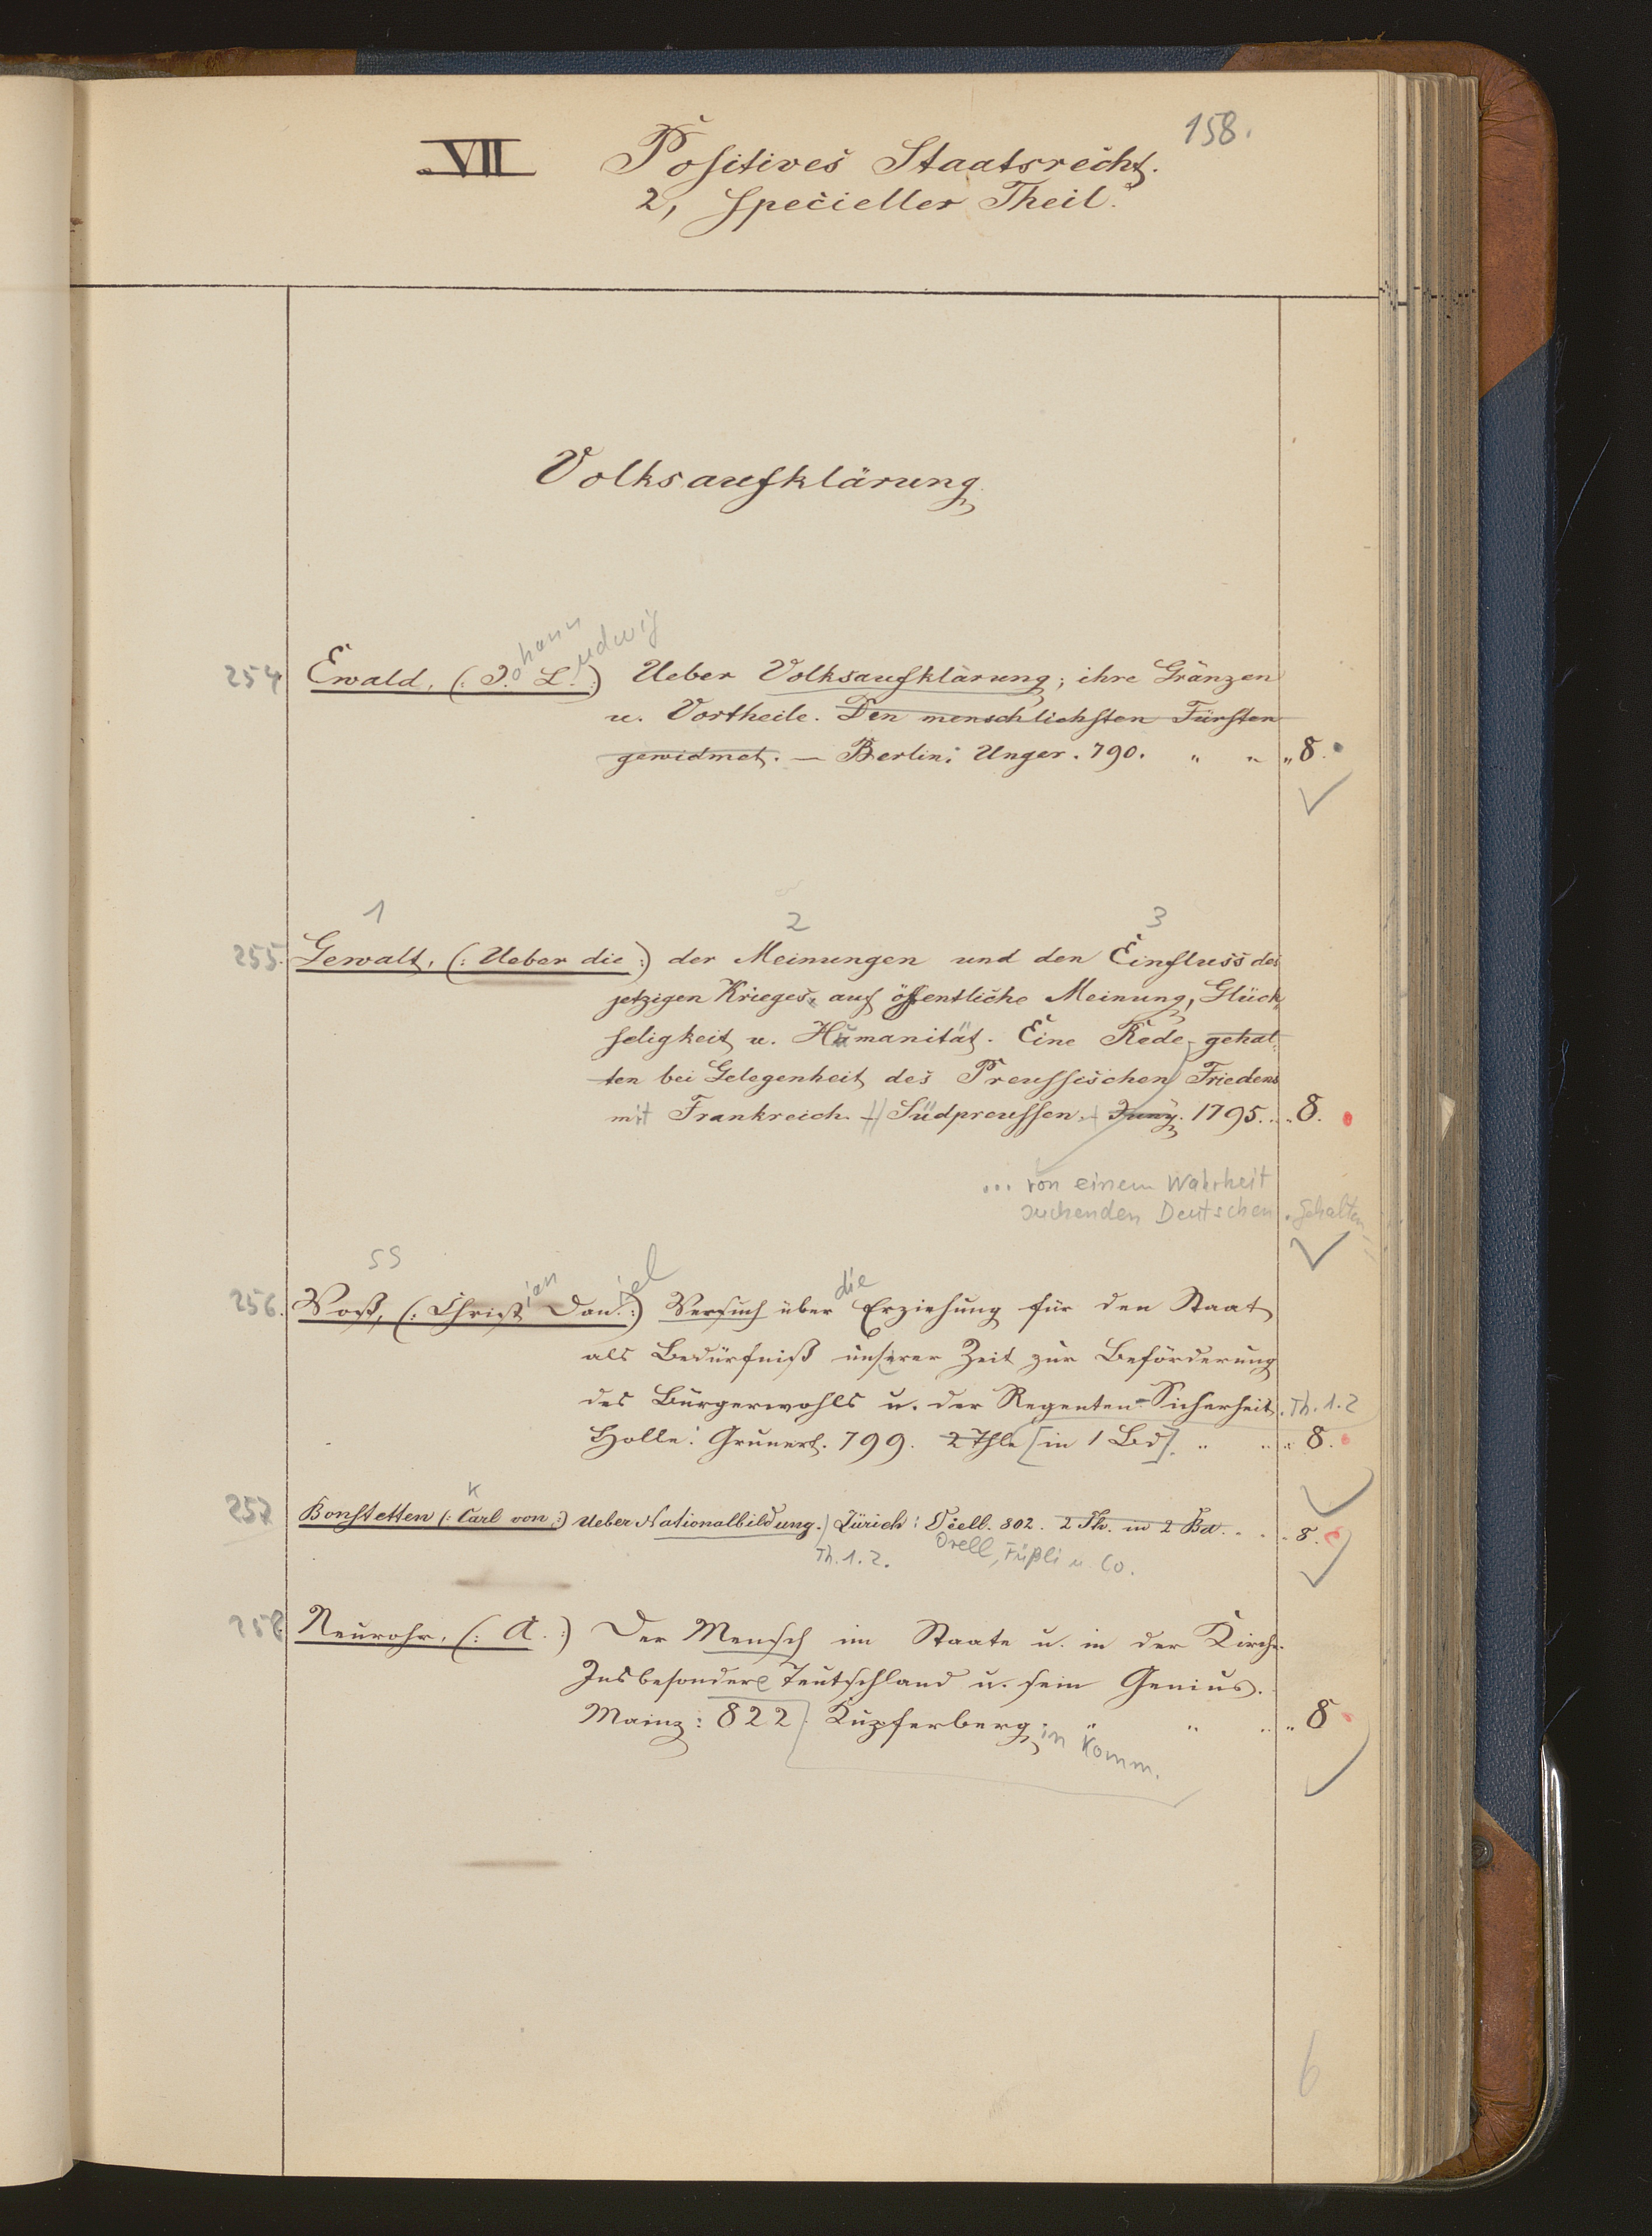 158.
VII Positives Staatsrecht.
2, specieller Theil.
Volksaufklärung
ohann udwig
254 Ewald, (: J. L. :) Ueber Volksaufklärung; ihre Gränzen
u. Vortheile. Den menschlichsten Fürsten
gewidmet. — Berlin: Unger. 790. " " " 8.
1 2 3
255. Gewalt, (: Ueber die :) der Meinungen und den Einfluss des
jetzigen Krieges, auf öffentliche Meinung, Glück-
seligkeit u. Humanität. Eine Rede, gehal-
ten bei Gelegenheit des Preussischen Friedens
mit Frankreich. Südpreussen, Juny. 1795. " " 8.
... von einem Wahrheit
suchenden Deutschen gehalten
ss ian iel die
256. Voß, (: Christ Dan. :) Versuch über Erziehung für den Staat
als Bedürfniß unserer Zeit zur Beförderung
des Bürgerwohls u. der Regenten-Sicherheit. Th. 1. 2
Halle: Grunert. 799. 2 Thle [in 1 Bd]. " " " 8.
K
257 Bonstetten (: Carl von :) Ueber Nationalbildung. Zürich: Orell. 802. 2 Th. in 2 Bd. " " " 8.
Th. 1. 2. Orell, Füßli u. Co.
258 Neurohr, (: A. :) Der Mensch im Staate u. in der Kirche.
Insbesondere Teutschland u. sein Genius.
Mainz: 822. Kupferberg. " " " " 8
in Komm.
6